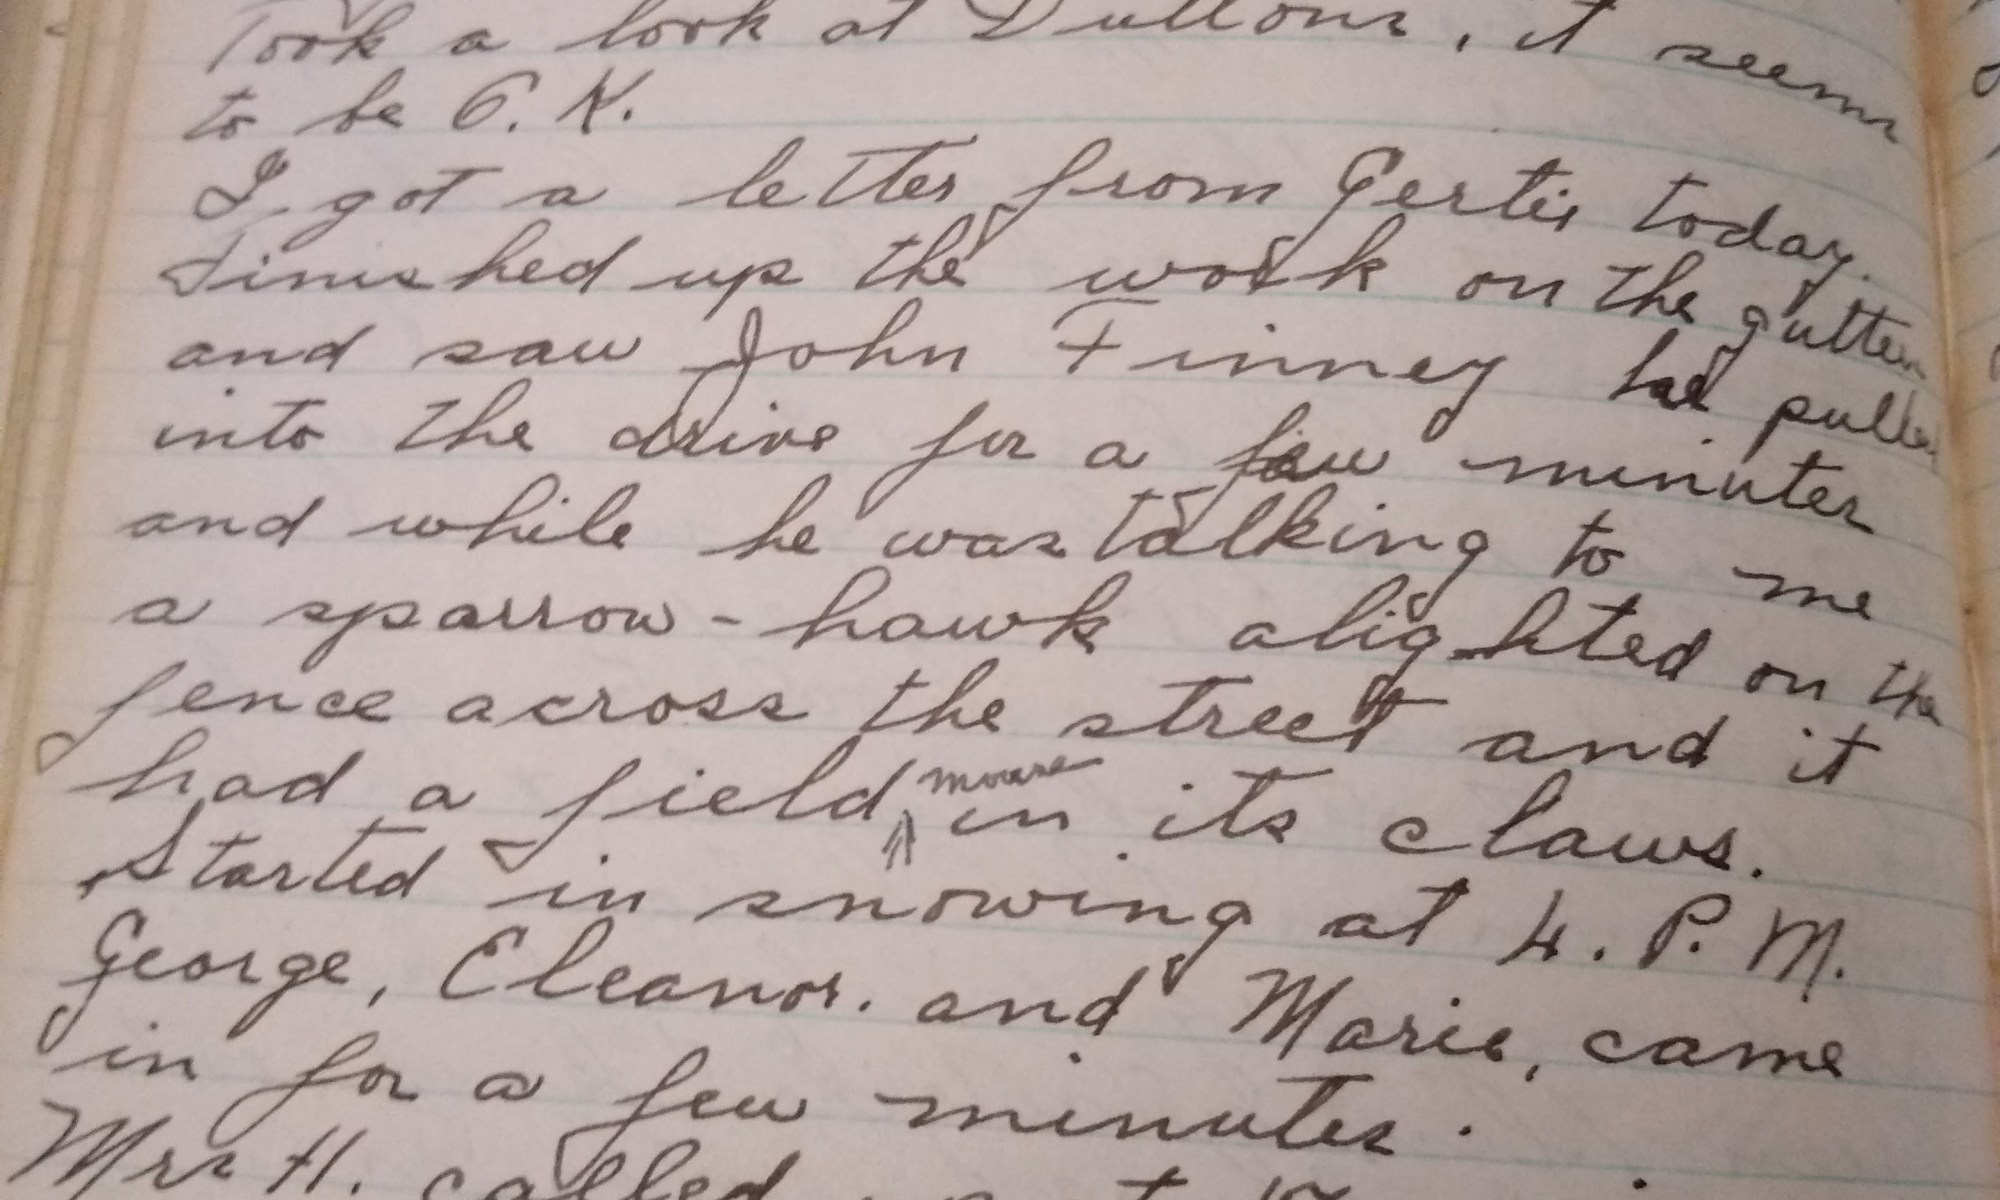 Took a look at Duttons, it seems
to be O.K.
I got a letter from Gertie today.
Finished up the work on the gutters
and saw John Finney he pulled
into the drive for a few minutes
and while he was talking to me
a sparrow-hawk alighted on the
fence across the street and it
had a field mouse in its claws.
Started in snowing at 4. P. M.
George, Eleanor. and Marie, came
in for a few minutes.
Mrs H. called